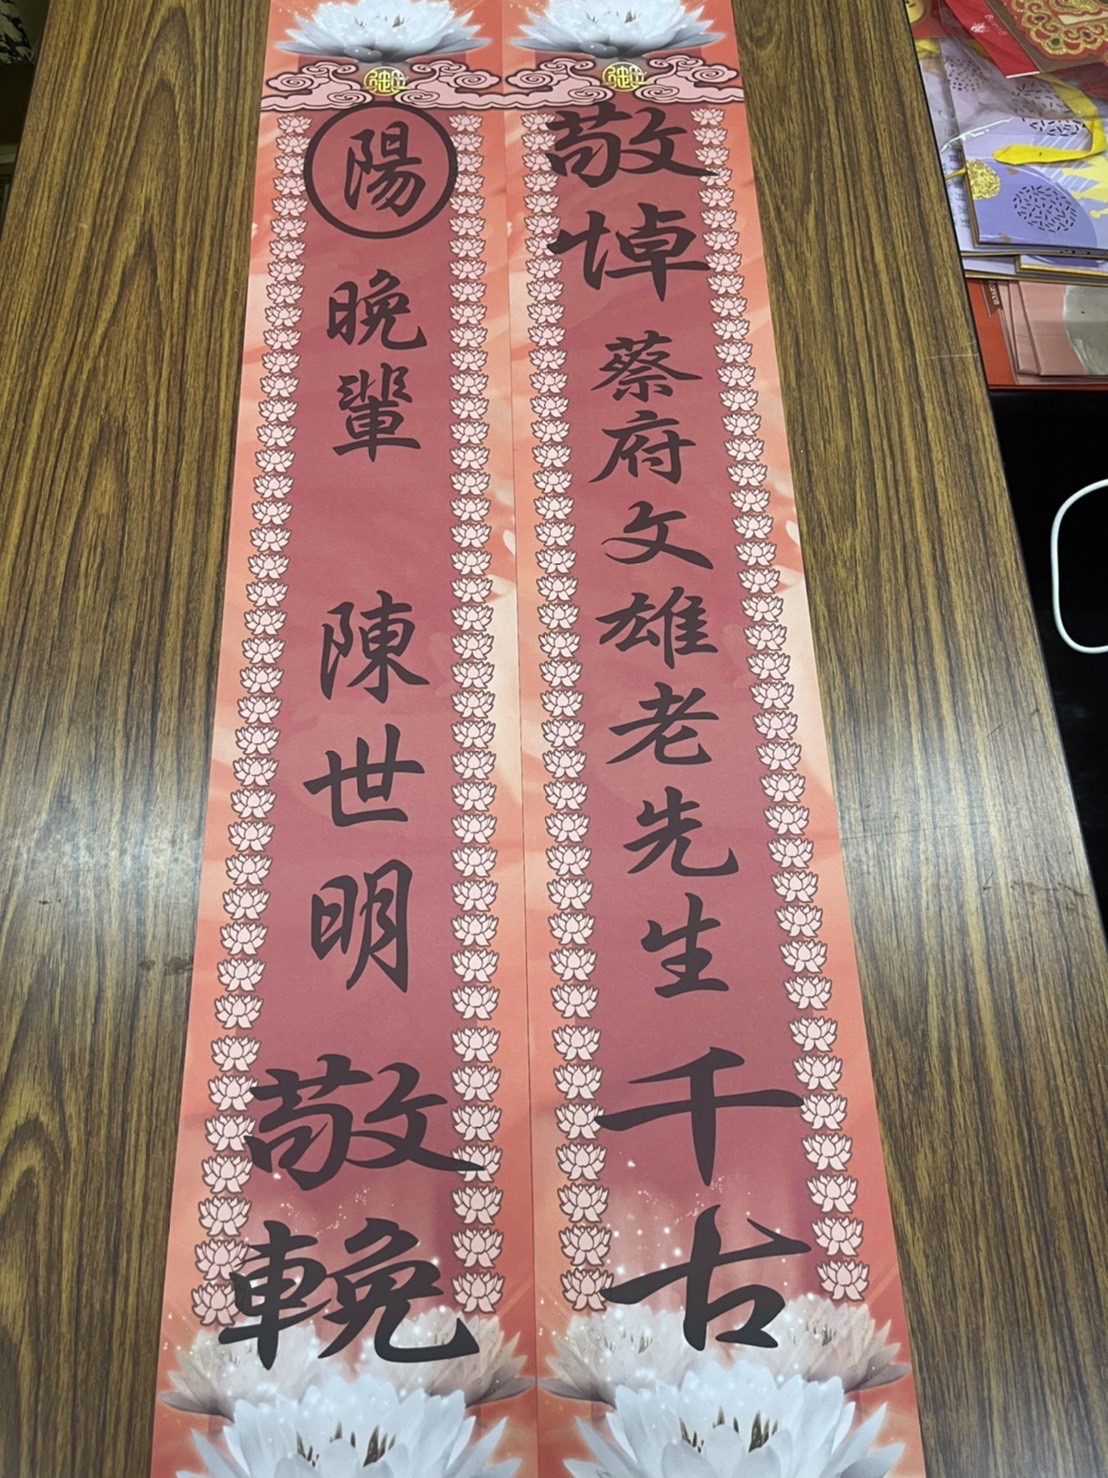 敬悼 蔡府文雄老先生 千古
陽 晚輩 陳世明 敬輓